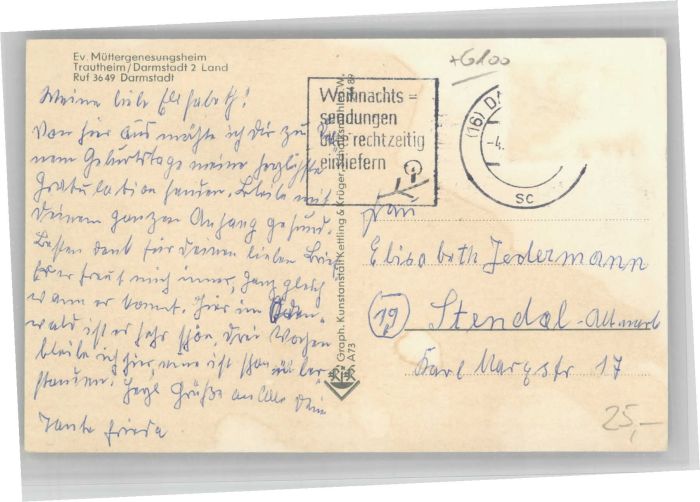 Ev. Müttergenesungsheim
Trautheim/Darmstadt 2 Land
Ruf 3649 Darmstadt
+6100
Meine liebe Elisabeth!
Von hier aus möchte ich Dir zu Dei
nem Geburtstage meine herzlichste
Gratulation senden. Bleibe mit
Deinem ganzen Anhang gesund.
Besten Dank für Deinen lieben Brief
Er erfreut mich immer, ganz gleich
wann er kommt. Hier im Oden-
wald ist es sehr schön. Drei Wochen
bleibe ich hier, eine ist schon über
standen. Herzl Grüße an alle Dein
Tante Frieda
Weihnachts =
sendungen
bitte rechtzeitig
einliefern
(16) D
-4.
sc
Graph. Kunstanstalt Kettling & Krüger,
A73
K&K
Frau
Elisabeth Jedermann
19 Stendal-Altmark
Karl Marxstr 17
25,-